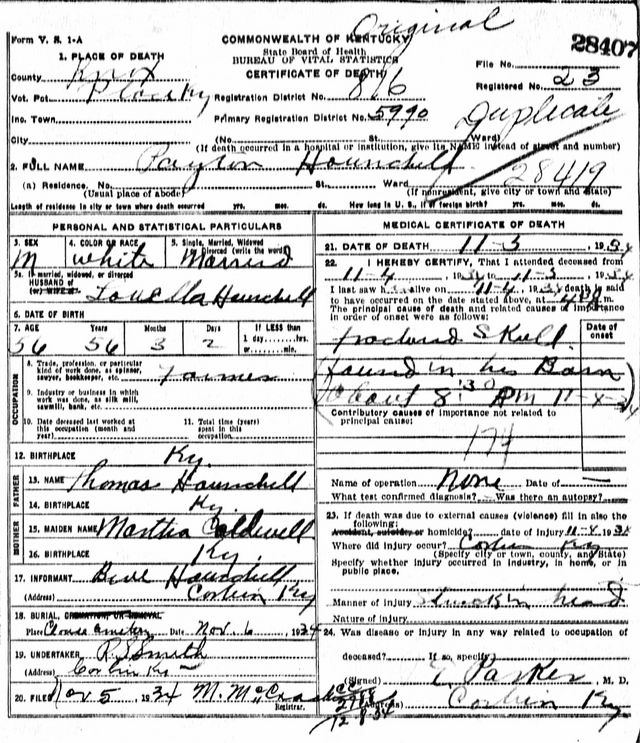 Original
Form V. S. 1-A
COMMONWEALTH OF KENTUCKY
State Board of Health
BUREAU OF VITAL STATISTICS
CERTIFICATE OF DEATH
28407
1. PLACE OF DEATH
County Knox
File No.
Registered No. 23
Vot. Pct. Registration District No. 876
Inc. Town Primary Registration District No. 5990
Duplicate
City (No. St. Ward)
(If death occurred in a hospital or institution, give its NAME instead of street and number)
2. FULL NAME Payton Hounchell
28419
(a) Residence. No. St. Ward
(Usual place of abode) (If nonresident, give city or town and State)
Length of residence in city or town where death occurred yrs. mos. ds. How long in U. S., if of foreign birth? yrs. mos. ds.
PERSONAL AND STATISTICAL PARTICULARS
3. SEX 4. COLOR OR RACE 5. Single, Married, Widowed
Divorced (write the word)
M white Married
5a. If married, widowed, or divorced
HUSBAND of
(or) WIFE of Louella Hounchell
6. DATE OF BIRTH
7. AGE Years Months Days If LESS than
1 day, hrs.
or min.
56 56 3 2
OCCUPATION
8. Trade, profession, or particular
kind of work done, as spinner,
sawyer, bookkeeper, etc. Farmer
9. Industry or business in which
work was done, as silk mill,
sawmill, bank, etc.
10. Date deceased last worked at
this occupation (month and
year)
11. Total time (years)
spent in this
occupation
12. BIRTHPLACE Ky.
FATHER
13. NAME Thomas Hounchell
14. BIRTHPLACE Ky.
MOTHER
15. MAIDEN NAME Martha Caldwell
16. BIRTHPLACE Ky.
17. INFORMANT Hounchell
(Address) Corbin Ky
18. BURIAL, CREMATION, OR REMOVAL
Place Cemetery Date Nov. 6, 1934
19. UNDERTAKER R. Smith
(Address) Corbin Ky
20. FILED Nov 5, 1934 M.
Registrar.
MEDICAL CERTIFICATE OF DEATH
21. DATE OF DEATH 11-3, 1934
22. I HEREBY CERTIFY, That I attended deceased from
11-4, 1934 to 11-3, 1934
I last saw h alive on 11-4, 1934 death is said
to have occurred on the date stated above, at m.
The principal cause of death and related causes of importance
in order of onset were as follows:
Date of
onset
fractured Skull
found in his Barn
About 8:30 PM 11-4-34
Contributory causes of importance not related to
principal cause:
Name of operation None Date of
What test confirmed diagnosis? Was there an autopsy?
23. If death was due to external causes (violence) fill in also the
following:
Accident, suicide, or homicide? date of injury 11-4, 1934
Where did injury occur? Corbin Ky
(Specify city or town, county, and State)
Specify whether injury occurred in industry, in home, or in
public place.
Manner of injury head
Nature of injury
24. Was disease or injury in any way related to occupation of
deceased? If so, specify
(Signed) E. Parker, M. D.
(Address) Corbin Ky